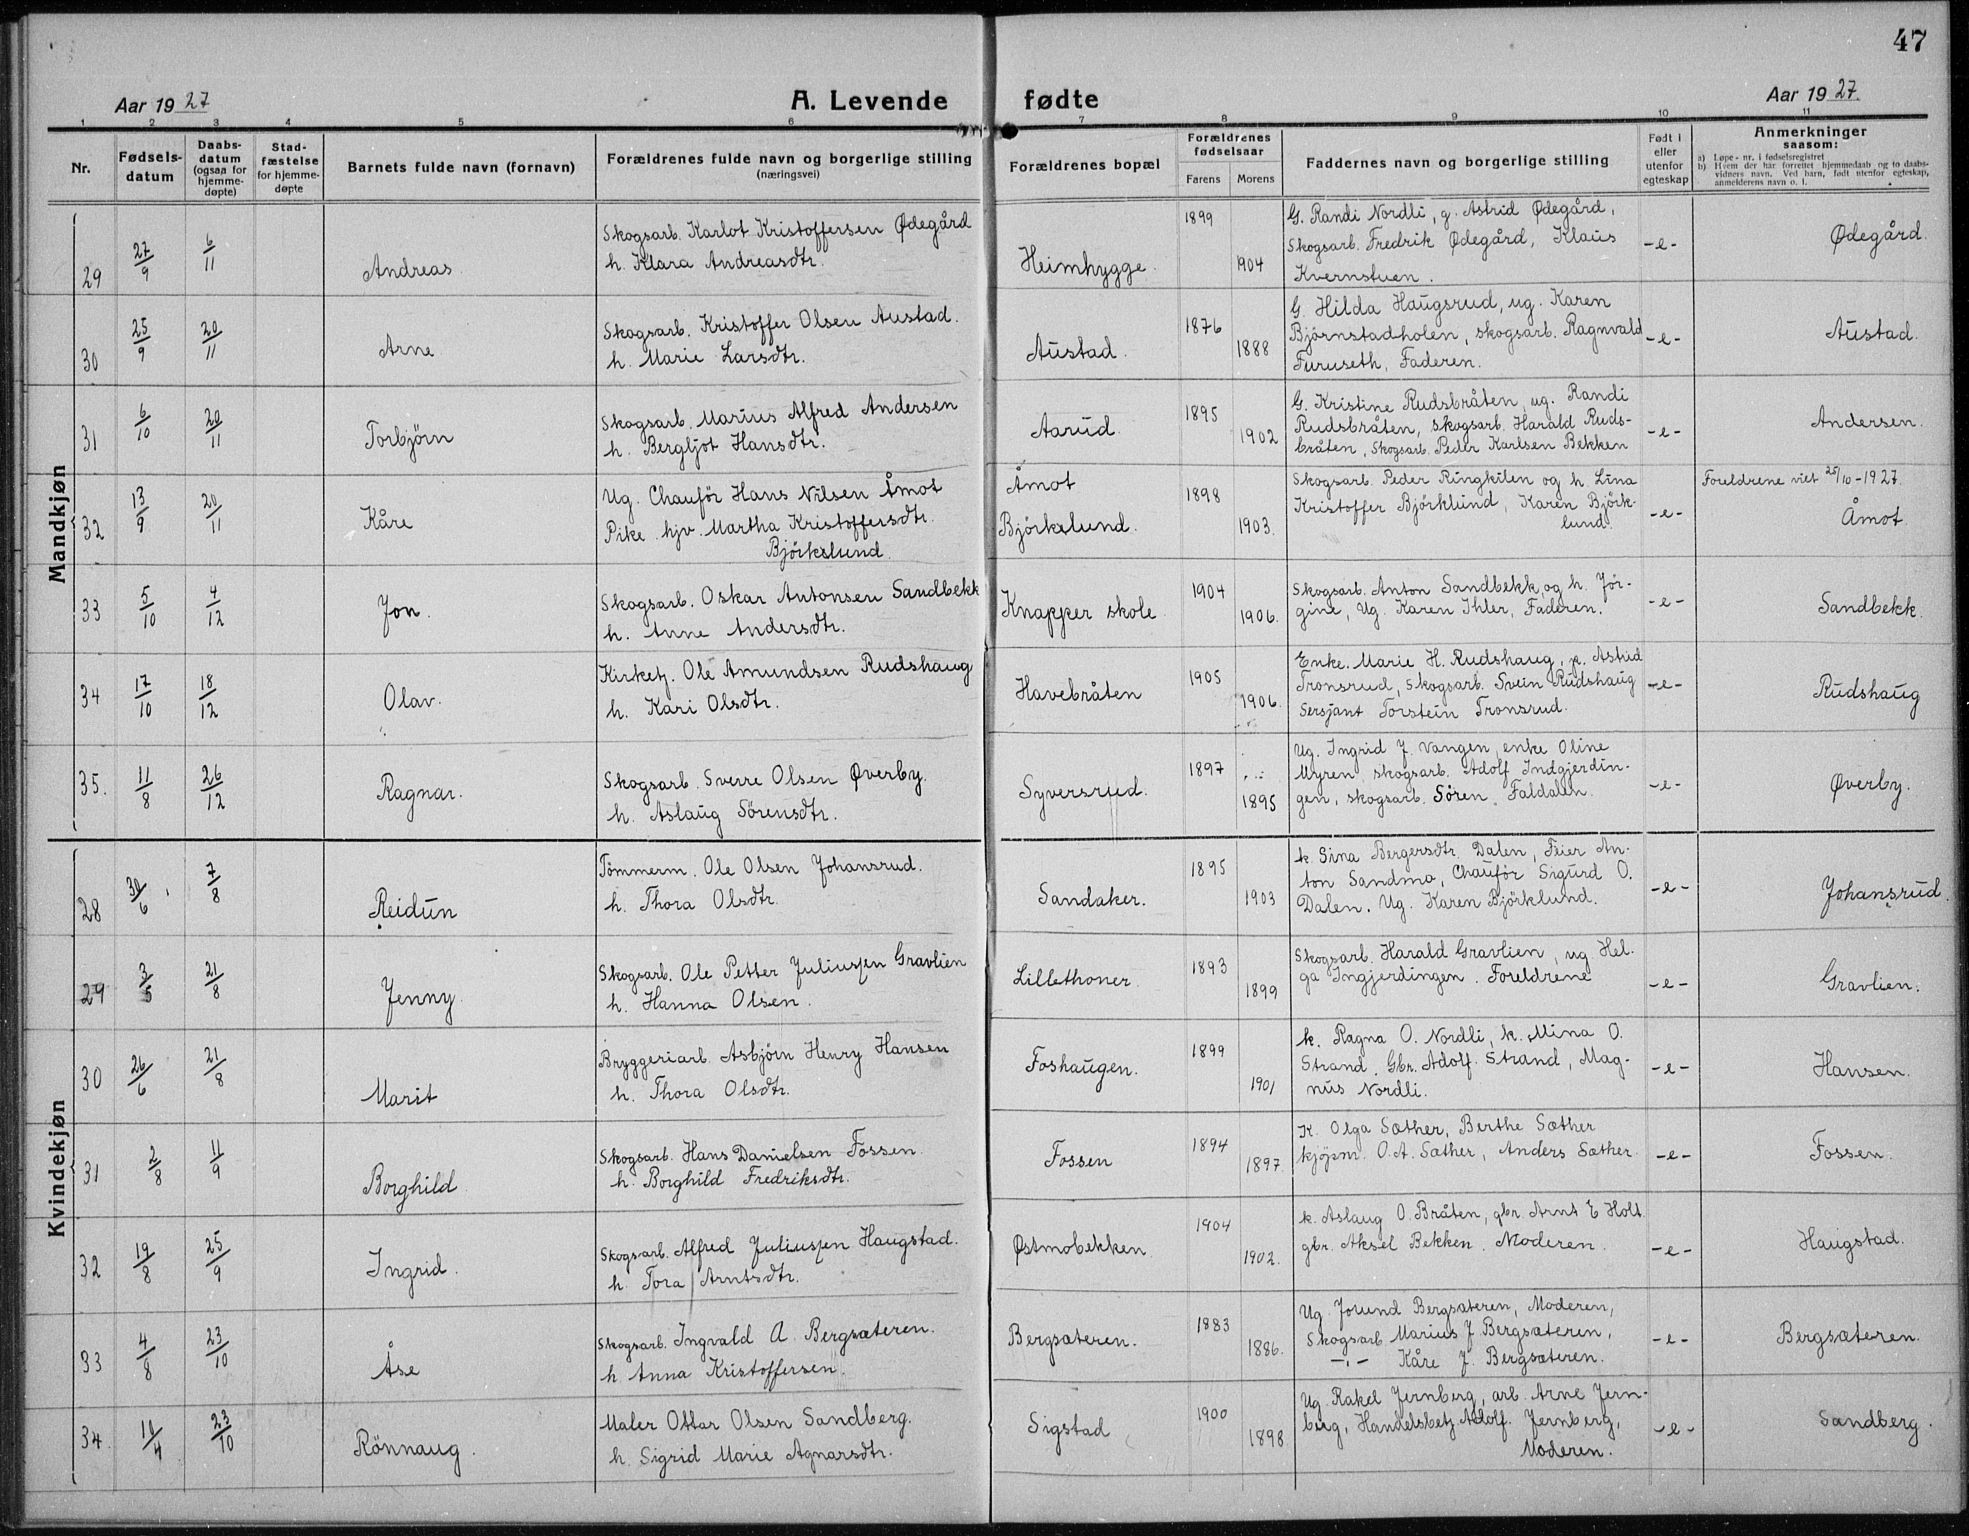 47
Aar 1927 A. Levende fødte Aar 1927.
1 2 3 4 5 6 7 8 9 10 11
Nr.
Fødsels-
datum
Daabs-
datum
(ogsaa for
hjemme-
døpte)
Stad-
fæstelse
for hjemme-
døpte
Barnets fulde navn (fornavn)
Forældrenes fulde navn og borgerlige stilling
(næringsvei)
Forældrenes bopæl
Forældrenes
fødselsaar
Farens Morens
Faddernes navn og borgerlige stilling
Født i
eller
utenfor
egteskap
Anmerkninger
saasom:
a) Løpe-nr. i fødselsregistret
b) Hvem der har forrettet hjemmedaab og to daabs-
vidners navn. Ved barn, født utenfor egteskap,
anmelderens navn o. l.
Mandkjøn
29 27/9 6/11 Andreas
Skogsarb. Karlot Kristoffersen Ødegård
h. Klara Andreasdtr.
Heimhygge. 1899 1904
G. Randi Nordli, g. Astrid Ødegård,
Skogsarb. Fredrik Ødegård, Klaus
Kvernstuen.
-e- Ødegård.
30 25/9 20/11 Arne
Skogsarb. Kristoffer Olsen Austad.
h. Marie Larsdtr.
Austad. 1876 1888
G. Hilda Haugsrud, ug. Karen
Bjørnstadholen, skogsarb. Ragnvald
Furuseth, Faderen.
-e- Austad.
31 6/10 20/11 Torbjörn
Skogsarb. Marius Alfred Andersen
h. Bergljot Hansdtr.
Aarud. 1895 1902
G. Kristine Rudsbråten, ug. Randi
Rudsbråten, skogsarb. Harald Ruds-
bråten, Skogsarb. Peder Karlsen Bekken
-e- Andersen.
32 13/9 20/11 Kåre
Ug. Chauför Hans Nilsen Åmot
Pike hjv. Martha Kristoffersdtr.
Björkslund.
Åmot
Björkslund. 1898 1903.
Skogsarb. Peder Ringkilen og h. Lina
Kristoffer Björklund, Karen Björk-
lund.
-e- Foreldrene viet 25/10-1927.
Åmot.
33 5/10 4/12 Jon.
Skogsarb. Oskar Antonsen Sandbekk
h. Anne Andersdtr.
Knapper skole. 1904 1906.
Skogsarb. Anton Sandbekk og h. Jör-
gine, Ug. Karen Ihler, Faderen.
-e- Sandbekk.
34 17/10 18/12 Olav.
Kirketj. Ole Amundsen Rudshaug
h. Kari Olsdtr.
Havebråten 1905 1906.
Enke. Marie H. Rudshaug, p. Astrid
Tronsrud, Skogsarb. Svein Rudshaug
Sersjant Torstein Tronsrud.
-e- Rudshaug
35. 11/8 26/12 Ragnar.
Skogsarb. Sverre Olsen Øverby.
h. Aslaug Sörensdtr.
Syversrud. 1897 1895
Ug. Ingrid J. Vangen, enke Oline
Myren, skogsarb. Adolf Indgjerdin-
gen, skogsarb. Sören. Faldalen.
-e- Øverby.
Kvindekjøn
28 30/6 7/8 Reidun
Tömmerm. Ole Olsen Johansrud.
h. Thora Olsdtr.
Sandaker. 1895 1903
k. Sina Bergersdtr. Dalen, Feier An-
ton Sandmo, Chauför Sigurd O.
Dalen. Ug. Karen Björklund.
-e- Johansrud.
29 3/5 21/8 Jenny.
Skogsarb. Ole Petter Juliussen Gravlien
h. Hanna Olsen.
Lillethoner 1893 1899
Skogsarb. Harald Gravlien, ug Hel-
ga Ingjerdingen. Foreldrene
-e- Gravlien.
30 26/6 21/8 Marit
Bryggeriarb. Asbjörn Henry Hansen
h. Thora Olsdtr.
Foshaugen. 1899 1901
k. Ragna O. Nordli, k. Mina O.
Strand. Gbr. Adolf Strand, Mag-
nus Nordli.
-e- Hansen.
31 2/8 11/9 Borghild.
Skogsarb. Hans Danielsen Fossen.
h. Borghild Fredriksdtr.
Fossen 1894 1897.
K. Olga Sæther, Berthe Sæther
kjöpm. O. A. Sæther, Anders Sæther.
-e- Fossen.
32 19/8 25/9 Ingrid.
Skogsarb. Alfred Juliussen Haugstad.
h. Tora Arntsdtr.
Østmobekken. 1904 1902.
k. Aslaug O. Bråten, gbr. Arnt E Holt.
gbr. Aksel Bekken. Moderen.
-e- Haugstad.
33 4/8 23/10 Åse
Skogsarb. Ingvald A. Bergsæteren.
h Anna Kristoffersen.
Bergsæteren. 1883 1886.
Ug. Jorund Bergsæteren, Moderen,
Skogsarb Marius J Bergsæteren,
-"- Kåre J. Bergsæteren.
-e- Bergsæteren.
34. 10/4 23/10 Rönnaug.
Maler Ottar Olsen Sandberg.
h. Sigrid Marie Agnarsdtr.
Sigstad 1900 1898
Ug. Rakel Jernberg, arb. Arne Jern-
berg, Handelsbetj. Adolf. Jernberg,
Moderen.
-e- Sandberg.